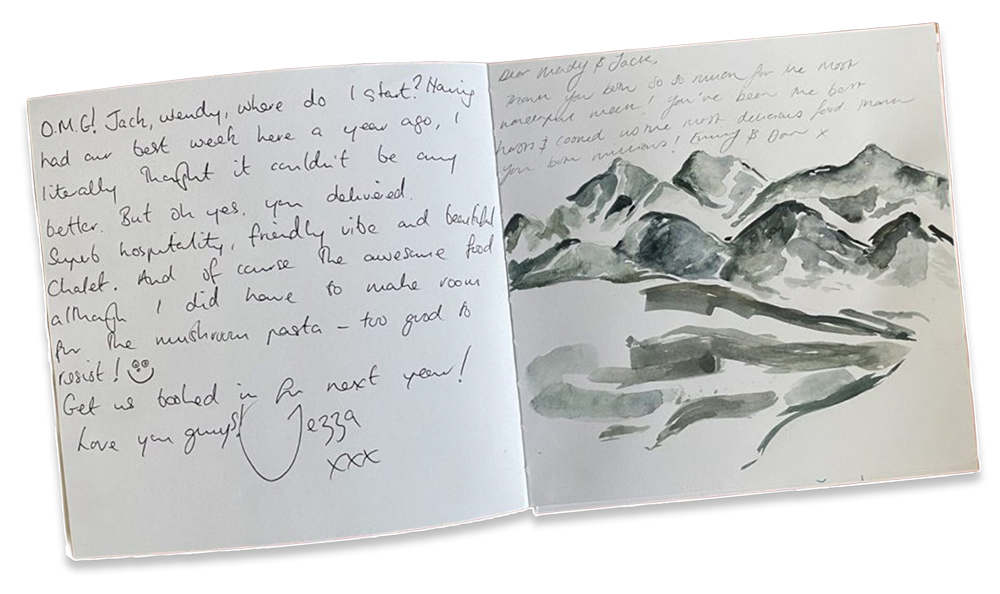 O.M.G! Jack, Wendy, where do I start? Having
had our best week here a year ago, I
literally thought it couldn't be any
better. But oh yes, you delivered.
Superb hospitality, friendly vibe and beautiful
Chalet. And of course the awesome food
although I did have to make room
for the mushroom pasta – too good to
resist!
Get us booked in for next year!
Love you guys! Jezza
xxx
Dear Wendy & Jack,
Thank you both so so much for the most
wonderful week! You've been the best
hosts & cooked us the most delicious food thank
you both millions! Emmy & Dan x